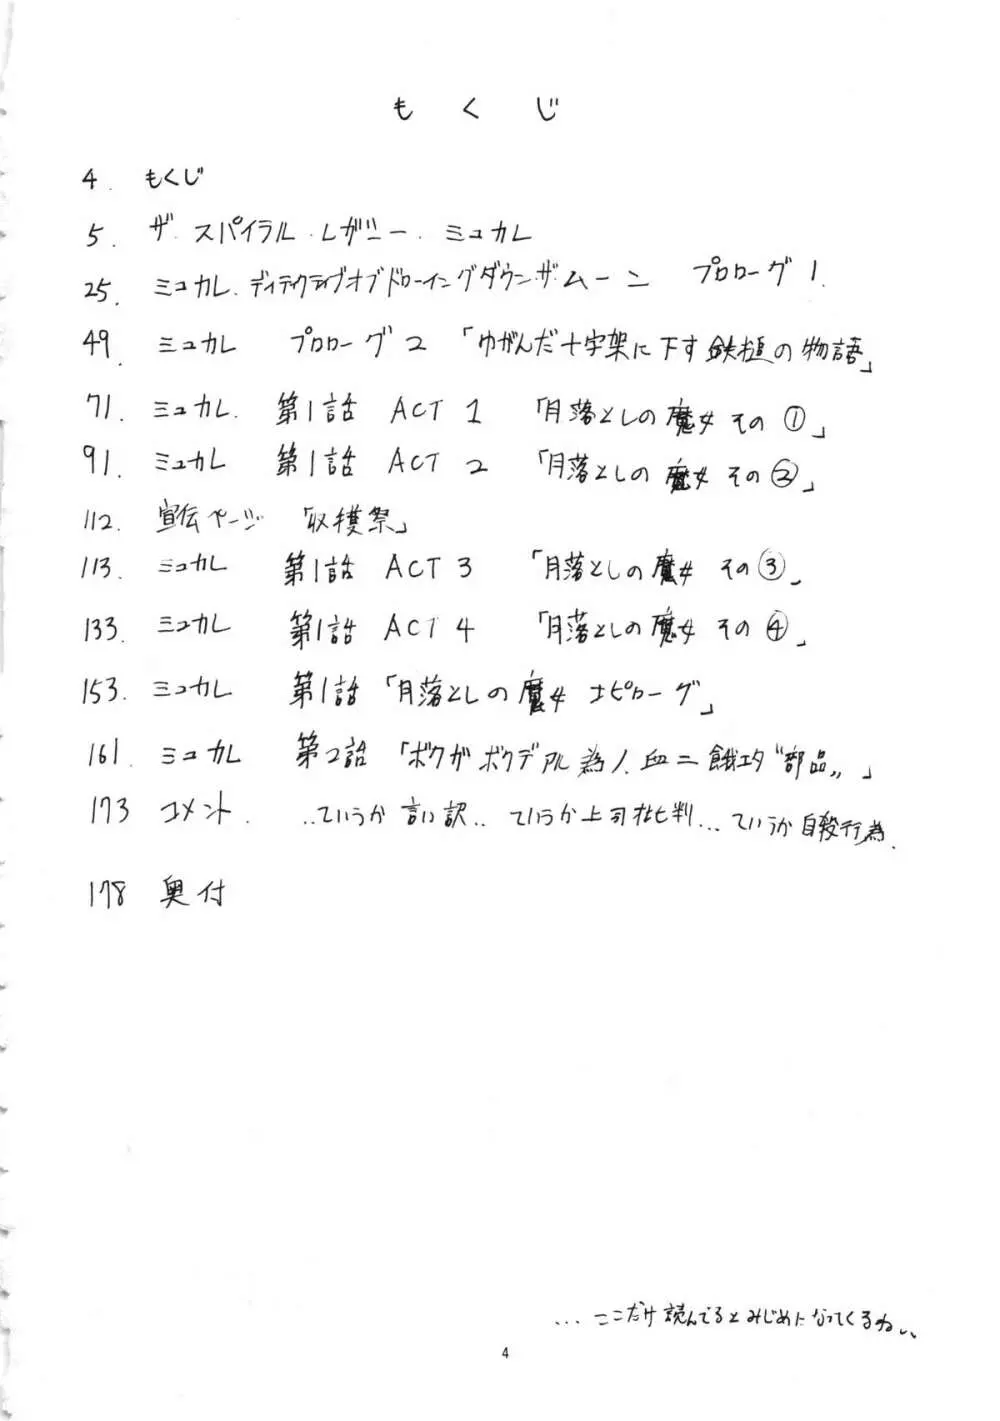 もくじ
4. もくじ
5. ザ・スパイラル・レガシー・ミュカレ
25. ミュカレ・ディテクティブオブドローイングダウン・ザ・ムーン プロローグ1
49. ミュカレ プロローグ2 「ゆがんだ十字架に下す鉄槌の物語」
71. ミュカレ 第1話 ACT 1 「月落としの魔女 その①」
91. ミュカレ 第1話 ACT 2 「月落としの魔女 その②」
112. 宣伝ページ 「収穫祭」
113. ミュカレ 第1話 ACT 3 「月落としの魔女 その③」
133. ミュカレ 第1話 ACT 4 「月落としの魔女 その④」
153. ミュカレ 第1話「月落としの魔女 エピローグ」
161. ミュカレ 第2話 「ボクガボクデアル為ノ、血ニ餓エタ〝部品〟」
173 コメント. ..ていうか言い訳.. ていうか上司批判... ていうか自殺行為.
178 奥付
...ここだけ読んでるとみじめになってくるね、、
4